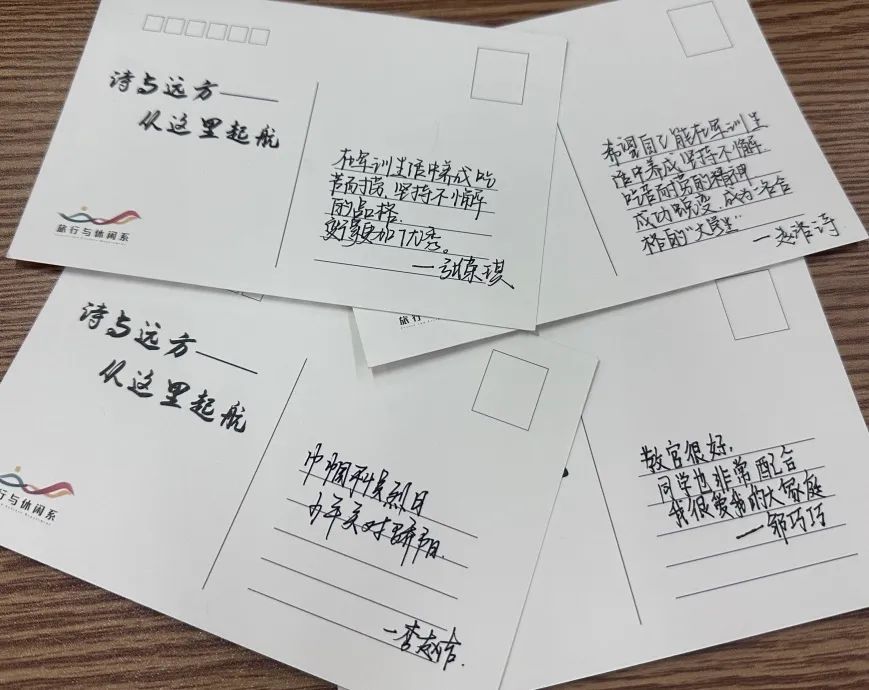 诗与远方——
从这里起航
旅行与休闲系
在军训生活中养成吃
苦耐劳、坚持不懈
的品格。
变得更加优秀。
希望自己能在军训生
活中养成坚持不懈
吃苦耐劳的精神
成功蜕变,成为一名合
格的“大学生”
诗与远方——
从这里起航
行与休闲系
巾帼不惧烈日
少年笑对骄阳.
一李
旅行
教官很好,
同学也非常配合
我很爱我的大家庭
一邹巧巧